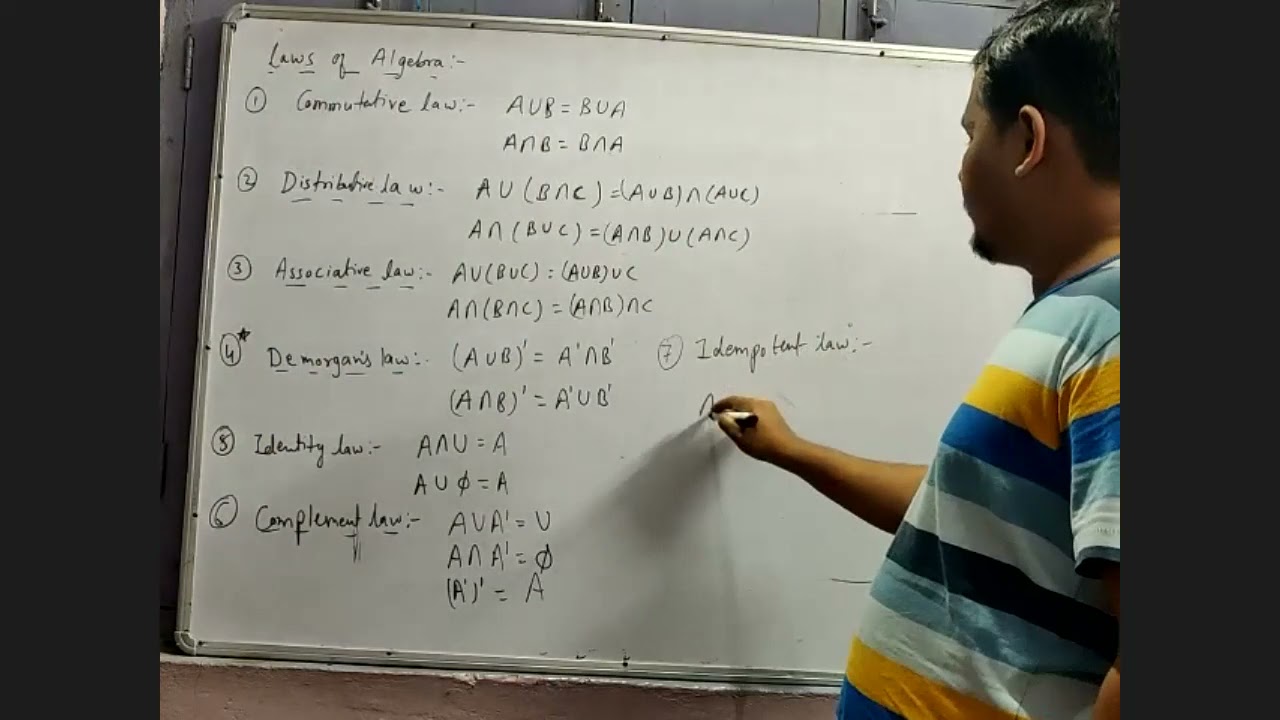 Laws of Algebra:-
① Commutative law:- A∪B = B∪A
A∩B = B∩A
② Distributive law:- A∪(B∩C) = (A∪B)∩(A∪C)
A∩(B∪C) = (A∩B)∪(A∩C)
③ Associative law:- A∪(B∪C) = (A∪B)∪C
A∩(B∩C) = (A∩B)∩C
④* Demorgan's law:- (A∪B)' = A'∩B'
(A∩B)' = A'∪B'
⑤ Identity law:- A∩U = A
A∪φ = A
⑥ Complement law:- A∪A' = U
A∩A' = φ
(A')' = A
⑦ Idempotent law:-
A